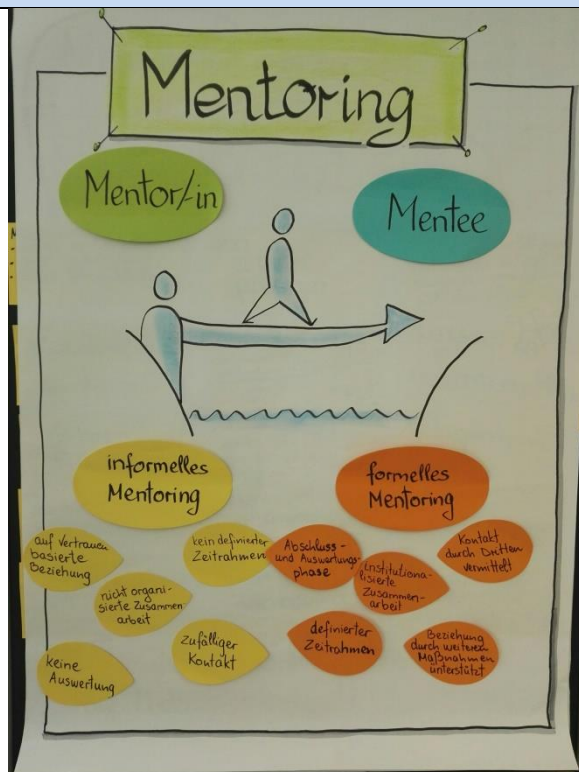 Mentoring
Mentor/-in
Mentee
informelles
Mentoring
formelles
Mentoring
auf Vertrauen
basierte
Beziehung
kein definierter
Zeitrahmen
nicht organi-
sierte Zusammen
arbeit
zufälliger
Kontakt
keine
Auswertung
Abschluss-
und Auswertungs
phase
institutiona-
lisierte
Zusammen-
arbeit
Kontakt
durch Dritten
vermittelt
definierter
Zeitrahmen
Beziehung
durch weiteren
Maßnahmen
unterstützt